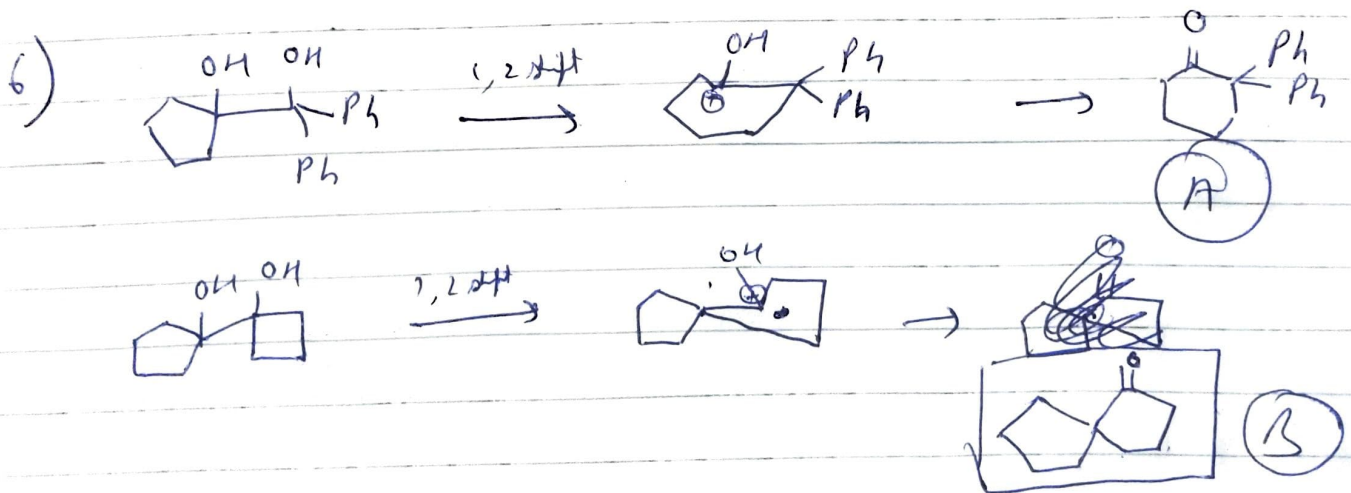 6)
OH OH
Ph
Ph
1,2 shift
OH
Ph
Ph
O
Ph
Ph
A
OH OH
1,2 shift
OH
O
B